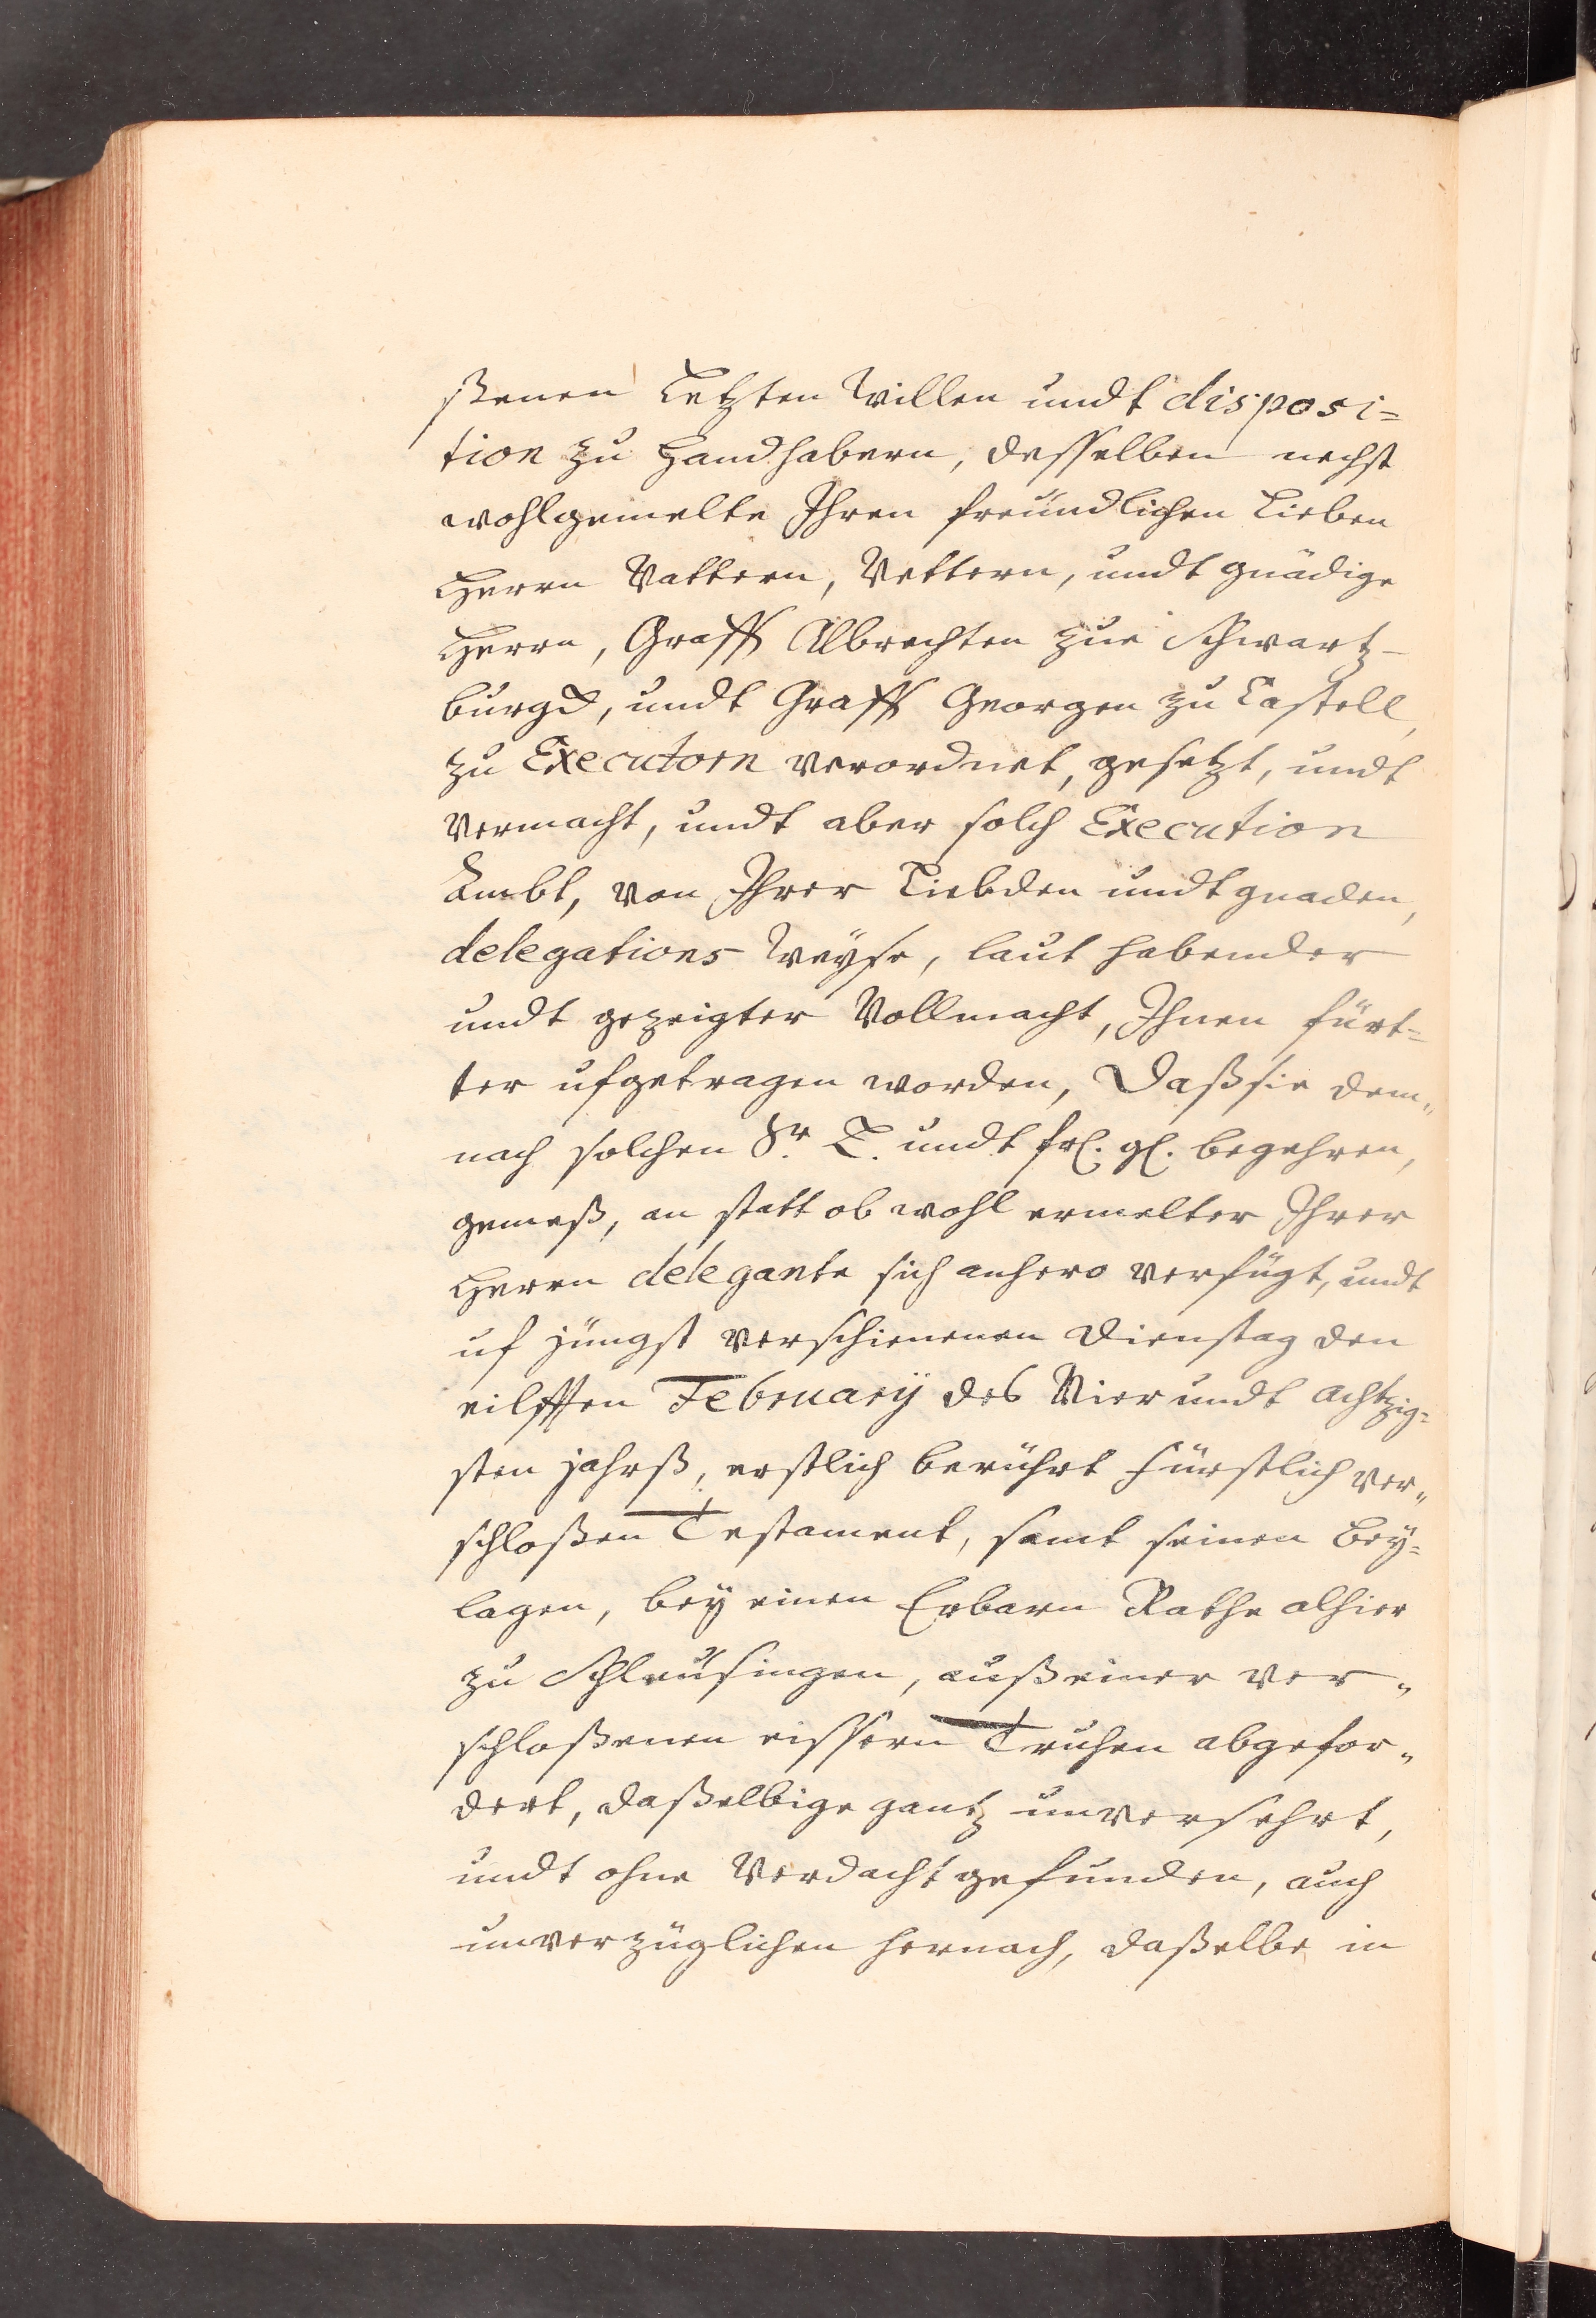 ßenen Letzten Willen undt disposi=
tion zu Handhabern, desselben nechst
wohlgemelte Ihren freundlichen Lieben
Herrn Vattern, Vettern, undt gnädige
Herrn, Graff Albrechten zue Schwartz-
burgk, undt Graff Georgen zu Castell,
zu Executorn verordnet, gesetzt, undt
Vermacht, undt aber solch Execution
Ambt, von Ihrer Liebden undt gnaden,
delegations Weyse, laut habender
undt gezeigter Vollmacht, Ihnen fürt=
ter ufgetragen worden, Daß sie dem„
nach solchen Sr. L. undt frl. gl. begehren,
gemeß, an statt ob wohl ermelter Ihrer
Herrn delegante sich anhero verfügt, undt
uf jüngst verschienenen Dienstag den
eilfften February des Vier undt achtzig=
sten jahrß, erstlich berührt Fürstlich ver„
schloßen Testament, samt seinen Bey=
lagen, bey einen Erbarn Rathe alhier
zu Schleusingen, auß einer ver„
schloßenen eissern Truhen abgefor„
dert, daßelbige gantz unversehrt,
undt ohne Verdacht gefunden, auch
unverzüglichen hernach, daßelbe in